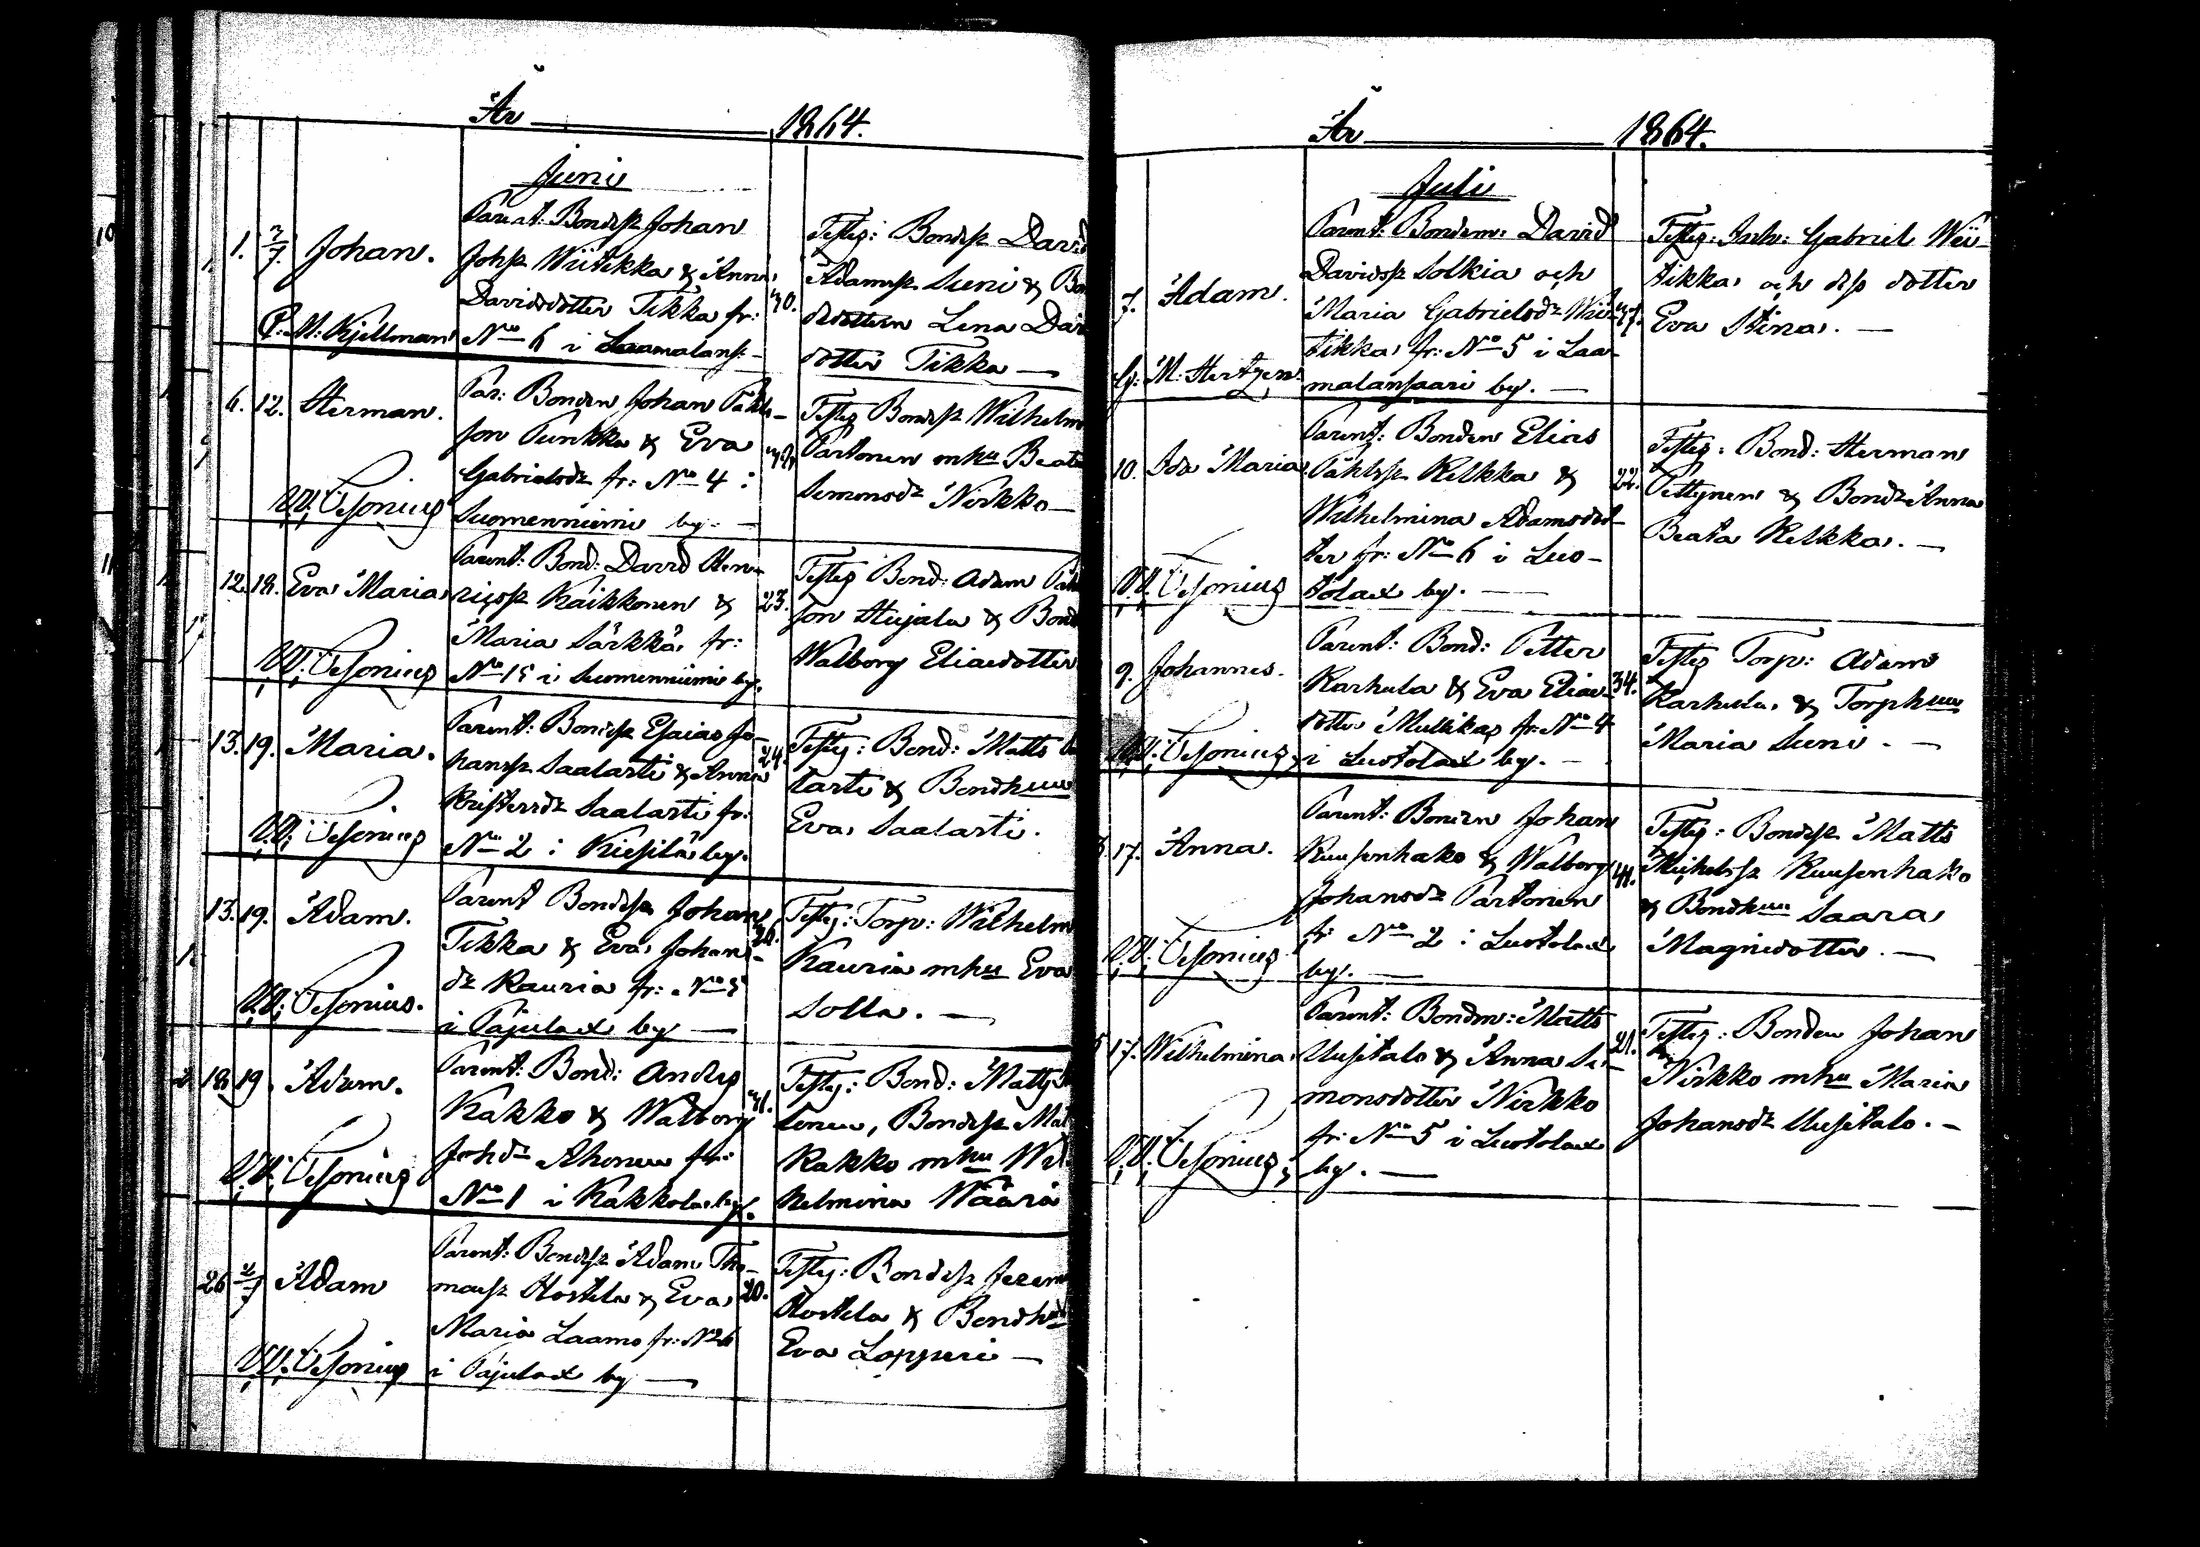 År 1864.
Juni
1. 2/7. Johan.
P. M. Kjellman
Parent: Bondess Johan
Johss Wiitikka & Anna
Davidsdotter Tikka fr:
No 6 i Laamalans:
30.
Testes: Bondess David
Adamss Suni & Bon
dedottern Lena Dav
dotter Tikka —
6. 12. Herman.
W. Cesonius
Par: Bonden Johan Påhls-
son Punkka & Eva
Gabrielsdr fr: No 4 i
Suomenniemi by. —
Testes Bondess Wilhelm
Partonen m hu Beata
Simonsdr Nirkko —
12. 18. Eva Maria
W. Cesonius
Parent: Bond: David Hen-
ricss Kaikkonen &
Maria Särkkä fr:
No 15 i Suomenniemi by.
23.
Testes Bond: Adam Påhl
son Hujala & Bond
Walborg Eliaedotter
13. 19. Maria.
W. Cesonius
Parent: Bondess Esaias Jo-
hanss Saalasti & Anna
Kristersdr Saalasti fr:
No 2 i Kiesilä by.
24.
Testes: Bond: Matts
lasti & Bondhuu
Eva Saalasti.
13. 19. Adam.
W. Cesonius.
Parent Bondess Johan
Tikka & Eva Johans-
dr Kauria fr: No 5
i Pajulax by —
Testes: Torp: Wilhelm
Kauria m hu Eva
Solla. —
18. 19. Adam.
W. Cesonius
Parent: Bond: Anders
Kakko & Walborg
Johdr Ahonen fr:
No 1 i Kakkola by.
Testes: Bond: Matts
tonen, Bondess Mat
Kakko m hu Wil
helmina Wäärä
26 Adam
W. Cesonius
Parent: Bondess Adam Tho-
mass Hostila & Eva
Maria Laamo fr: No 6
i Pajulax by —
20.
Testes: Bondess Jerem
Hostila & Bondhu
Eva Lapperi —
År 1864.
Juli
7. Adam.
G. M. Hertzen.
Parent: Bondem: David
Davidss Solkia och
Maria Gabrielsdr Wii-
tikka fr: No 5 i Laa-
malansaari by. —
37.
Testes: Inh: Gabriel Wii-
tikka och dess dotter
Eva Stina. —
10. Ida Maria
W. Cesonius
Parent: Bonden Elias
Påhlss Kelkka &
Wilhelmina Adamsdot-
ter fr: No 6 i Luo-
tolax by. —
22.
Testes: Bond: Herman
Pettynen & Bondr Anna
Beata Kelkka. —
9. Johannes.
W. Cesonius
Parent: Bond: Petter
Karhula & Eva Eliae
dotter Mullikas fr: No 4
i Luotolax by. —
34.
Testes Torp: Adam
Karhula & Torphuu
Maria Suni. —
17. Anna.
W. Cesonius
Parent: Bonden Johan
Kuusenhako & Walborg
Johansdr Partonen
fr: No 2 i Luotolax
by. —
41.
Testes: Bondess Matts
Michelss Kuusenhako
& Bondhuu Saara
Magnedotter. —
17. Wilhelmina
W. Cesonius
Parent: Bondem: Matts
Uusitalo & Anna Si-
monsdotter Nirkko
fr: No 5 i Luotolax
by. —
21.
Testes: Bonden Johan
Nirkko m hu Maria
Johansdr Uusitalo. —